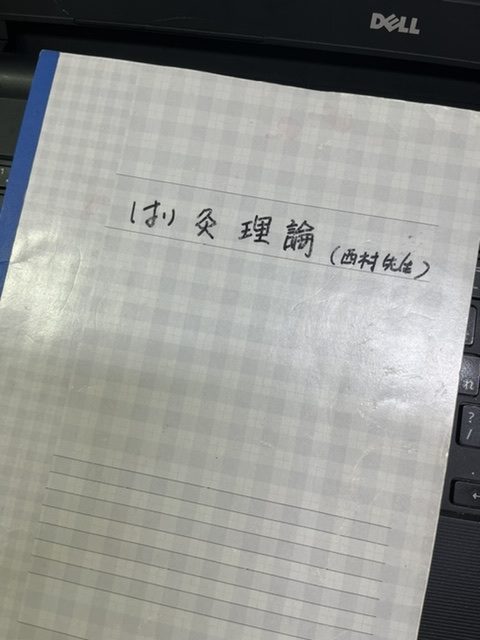 DELL
はり灸理論
(西村先生)
?
/
れ